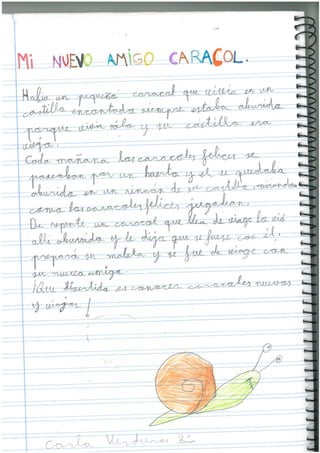 MI NUEVO AMIGO CARACOL.
Había un pequeño caracol que vivía en un
castillo encantado siempre estaba aburrido
porque vivía solo y su castillo era
viejo.
Cada mañana los caracoles felices se
paseaban por un huerto y el se quedaba
aburrido en un rincón de su castillo mirando
como los caracoles felices jugaban.
De repente un caracol que iba de viage lo vió
allí aburrido y le dijo que se fuese con él,
preparó su maleta y se fue de viage con
su nuevo amigo.
¡Que divertido es conocer caracoles nuevos
y viajar!
Carla Verduras 3º